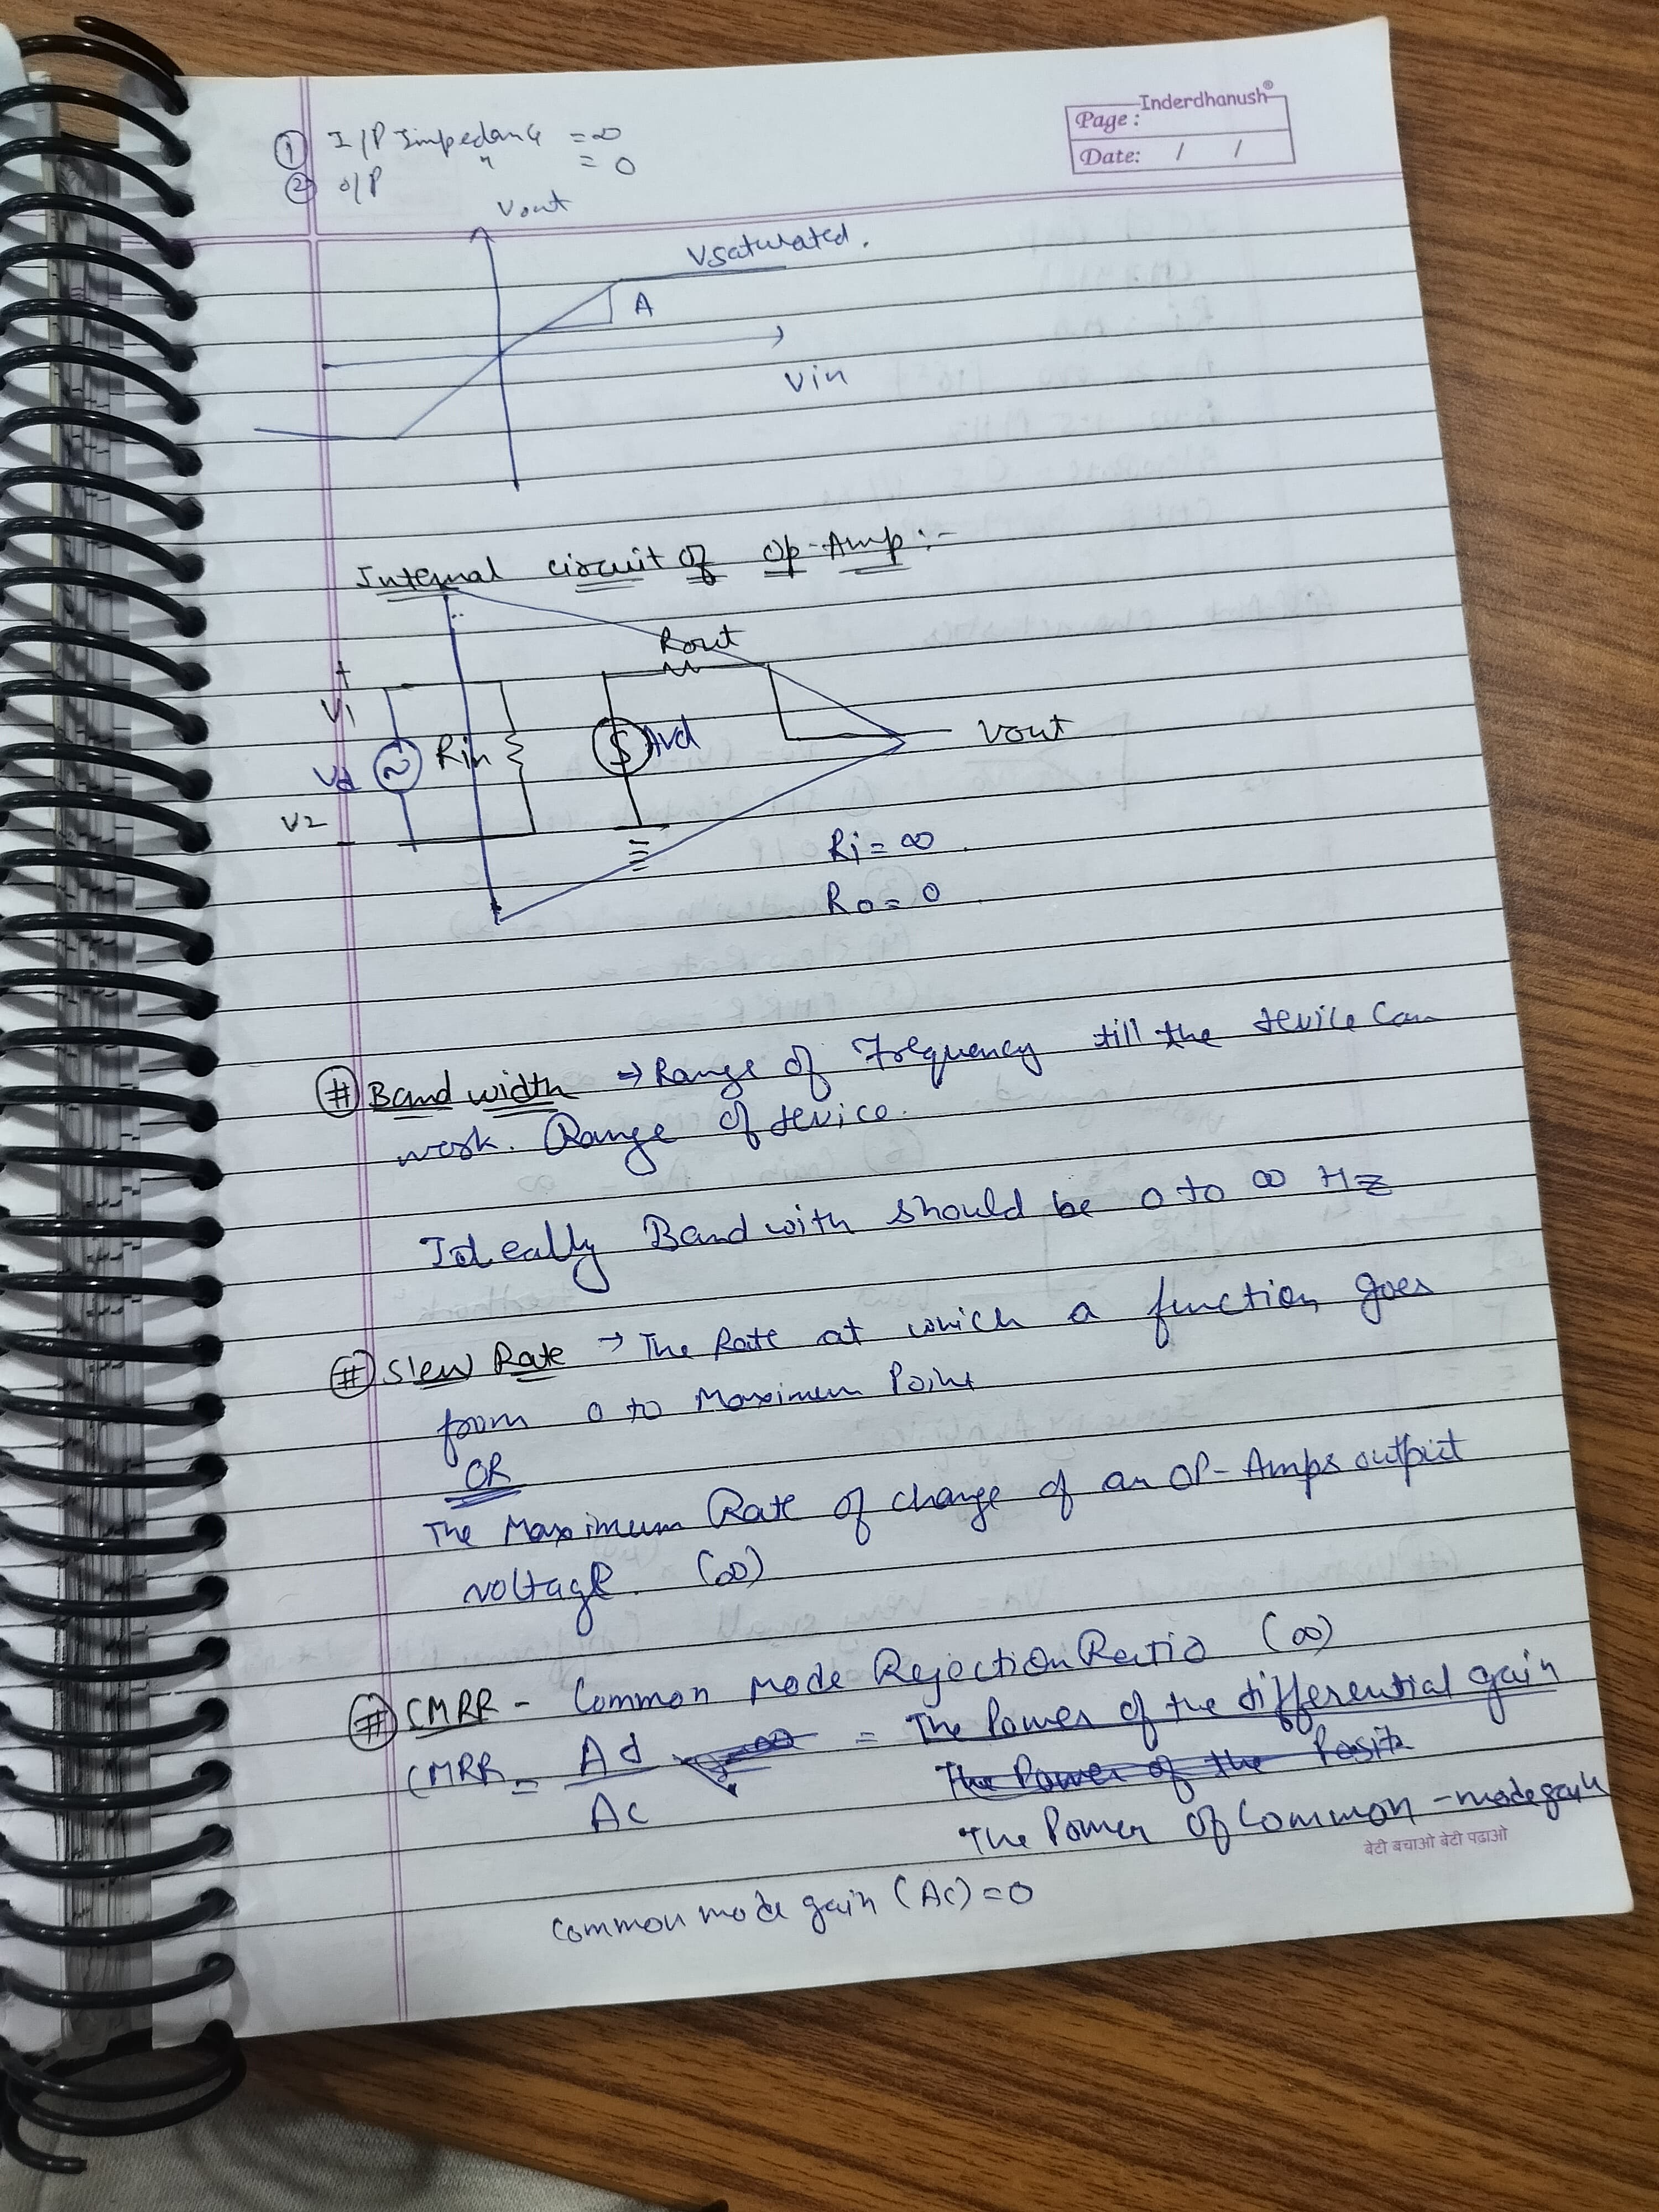 Inderdhanush®
Page:
Date: / /
① I/P Impedance = ∞
② O/P " = 0
Vout
Vsaturated.
A
Vin
Internal circuit of Op-Amp:-
Rout
+
V1
Vd
Rin
AVd
Vout
V2
-
Ri = ∞
Ro = 0
# Band width → Range of Frequency till the device can
work. Range of device.
Ideally Bandwith should be 0 to ∞ Hz
# Slew Rate → The Rate at which a function goes
from 0 to Maximum Point
OR
The Maximum Rate of change of an OP-Amps output
voltage. (∞)
# CMRR - Common Mode Rejection Ratio (∞)
CMRR = Ad = The Power of the differential gain
The Power of the Posit
Ac The Power of Common-mode gain
बेटी बचाओ बेटी पढ़ाओ
Common mode gain (Ac) = 0